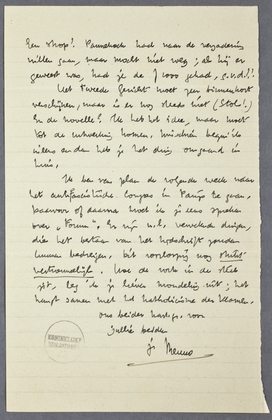 Een strop! Pannekoek had naar de vergadering
willen gaan, maar mocht niet weg; als hij er
geweest was, had je de ƒ 1000 gehad, g.v.d.!!
Het Tweede Gezicht moet zeer binnenkort
verschijnen, maar is er nog steeds niet (Stols!)
En de novelle? Ik heb het idee, maar moet
tot de uitwerking komen, misschien begin ik
ineens en dan heb je het ding omgaand in
huis.
Ik ben van plan de volgende week naar
het antifascistische congres in Parijs te gaan,
daarvoor of daarna moet ik je eens spreken
over „Forum". Er zijn n.l. verwikkelingen,
die het bestaan van het tijdschrift zouden
kunnen bedreigen, dit voorloopig nog strikt
vertrouwelijk. Hoe de vork in de steel
zit, leg ik je liever mondeling uit; het
hangt samen met het Katholicisme der Vlamen.
ons beider hartelijks, voor
jullie beiden
je Menno